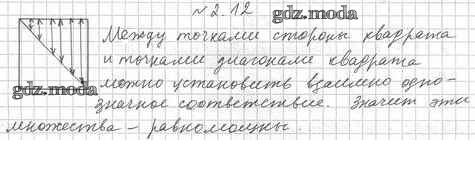 №2.12
gdz.moda
Между точками стороны квадрата
и точками диагонали квадрата
gdz.moda
можно установить взаимно одно-
значное соответствие. Значит эти
множества - равномощны.